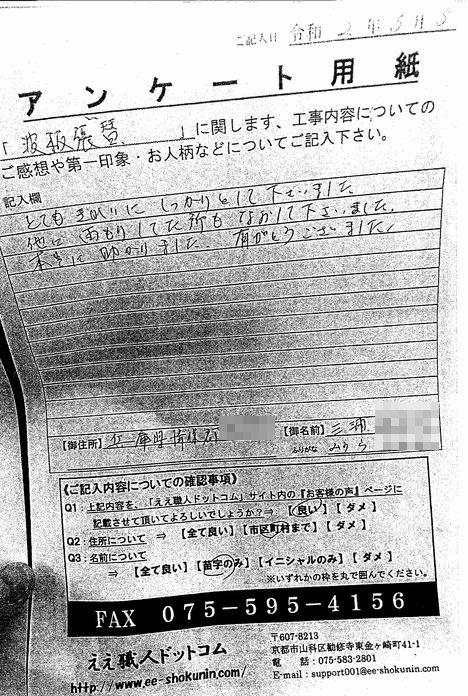 ご記入日 令和 2年5月5
アンケート用紙
「波板張替 」に関します、工事内容についての
ご感想や第一印象・お人柄などについてご記入下さい。
記入欄
とてもきれいに しっかりとして下さいました
他に 雨もりしてた所も なおして下さいました。
本当に助かりました。 有がとうございました。
【御住所】兵庫県揖保郡 【御名前】三浦
ふりがな みうら
《ご記入内容についての確認事項》
Q1：上記内容を、「ええ職人ドットコム」サイト内の『お客様の声』ページに
記載させて頂いてよろしいでしょうか？⇒ 【良い】【ダメ】
Q2：住所について ⇒ 【全て良い】【市区町村まで】【ダメ】
Q3：名前について
⇒ 【全て良い】【苗字のみ】【イニシャルのみ】【ダメ】
※いずれかの枠を丸で囲んでください。
FAX 075-595-4156
ええ職人ドットコム
http://www.ee-shokunin.com/
〒607-8213
京都市山科区勧修寺東金ヶ崎町41-1
電 話：075-583-2801
E-mail：support001@ee-shokunin.com